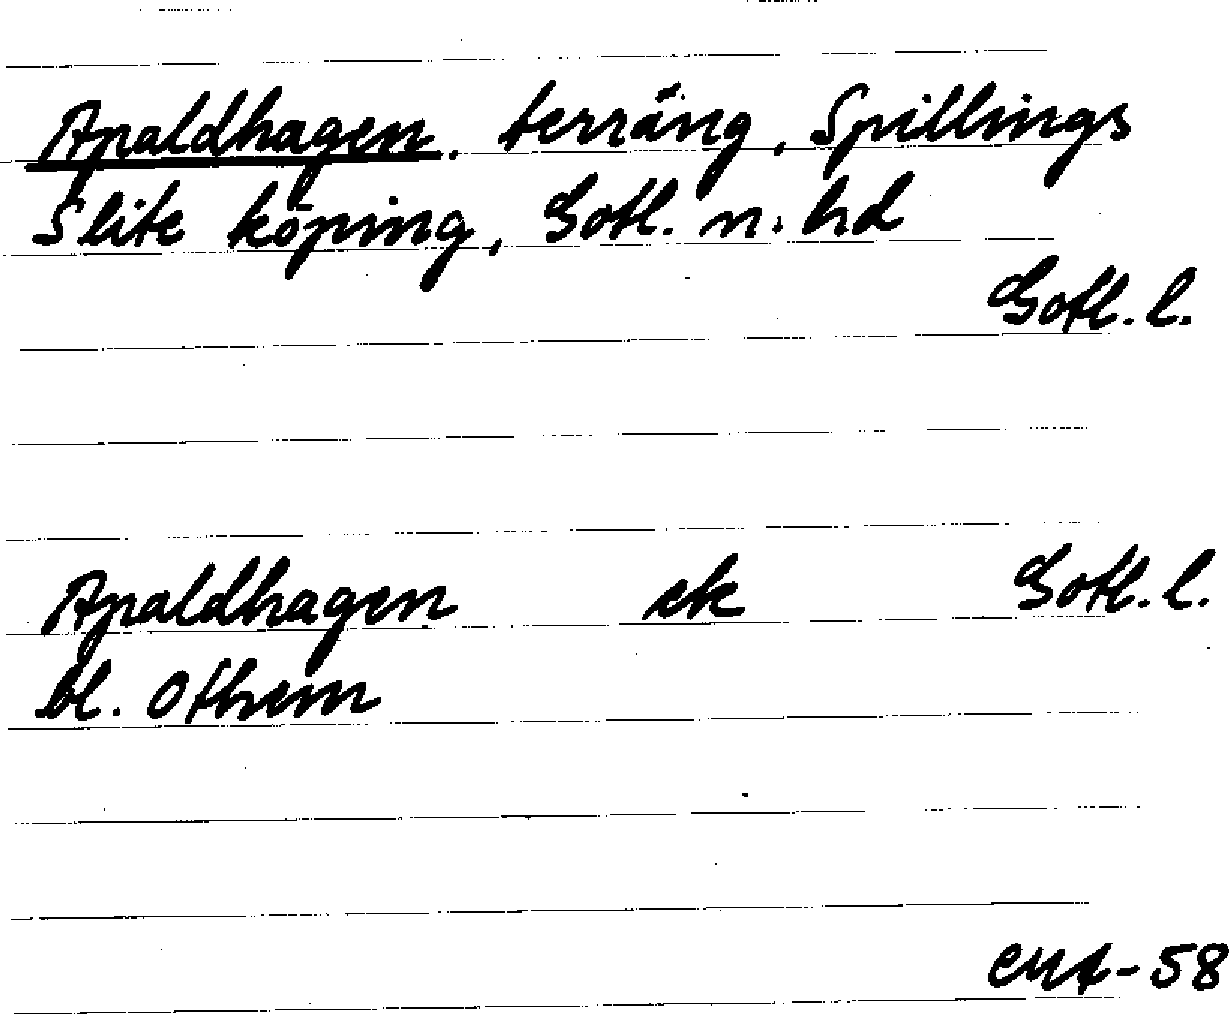 Apaldhagen, terräng, Spillings
Slite köping, Gotl. n. hd
Gotl. l.
Apaldhagen ek Gotl. l.
bl. Othem
58